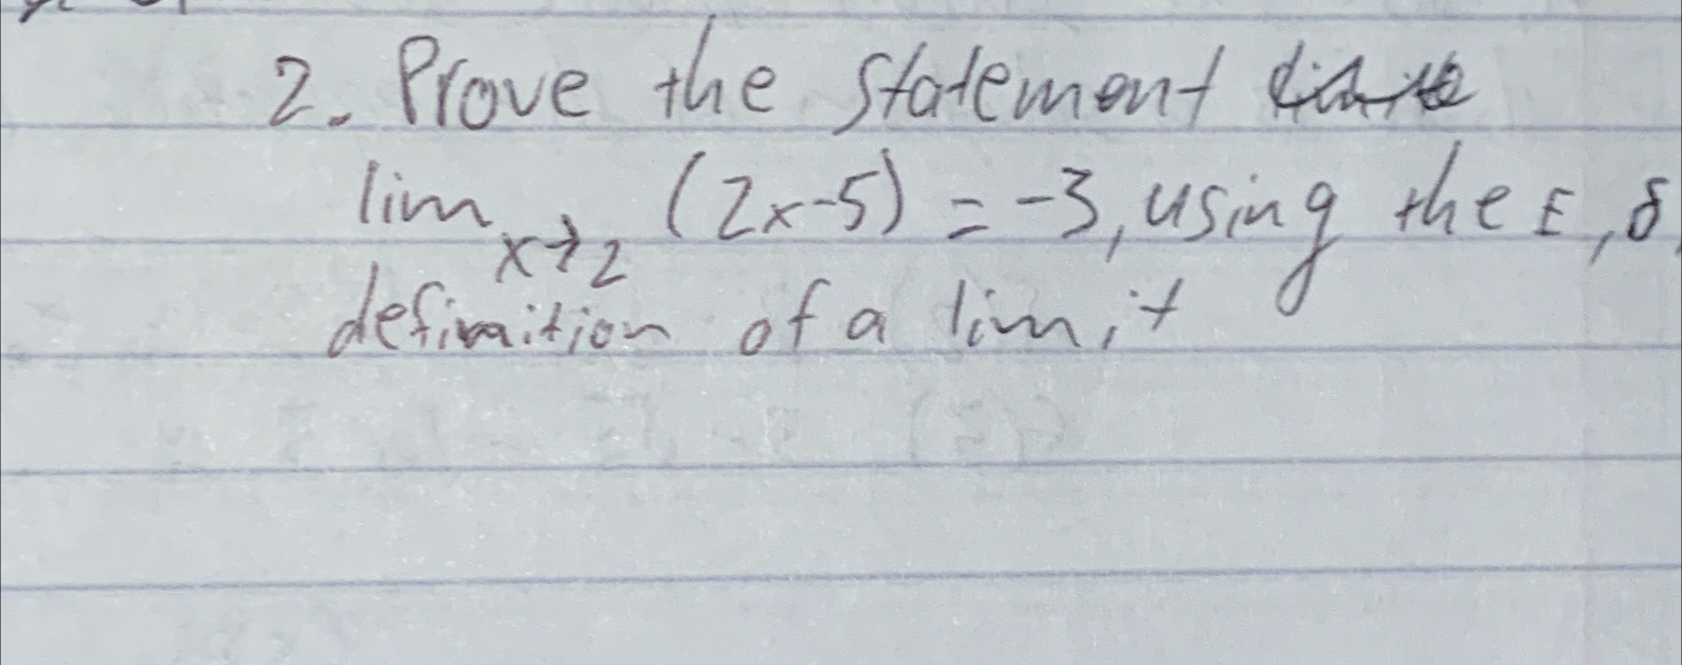 2. Prove the statement
lim x→2 (2x-5) = -3, using the ε, δ
definition of a limit